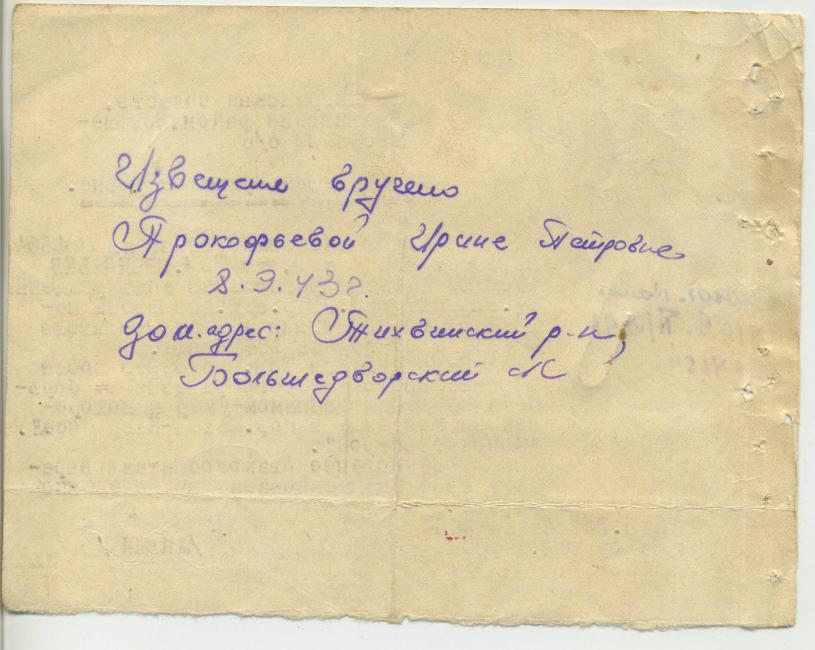 Извещение вручено
Прокофьевой Ирине Петровне
8.9.43г.
дом.адрес: Тихвинский р-н,
Большедворский с/с